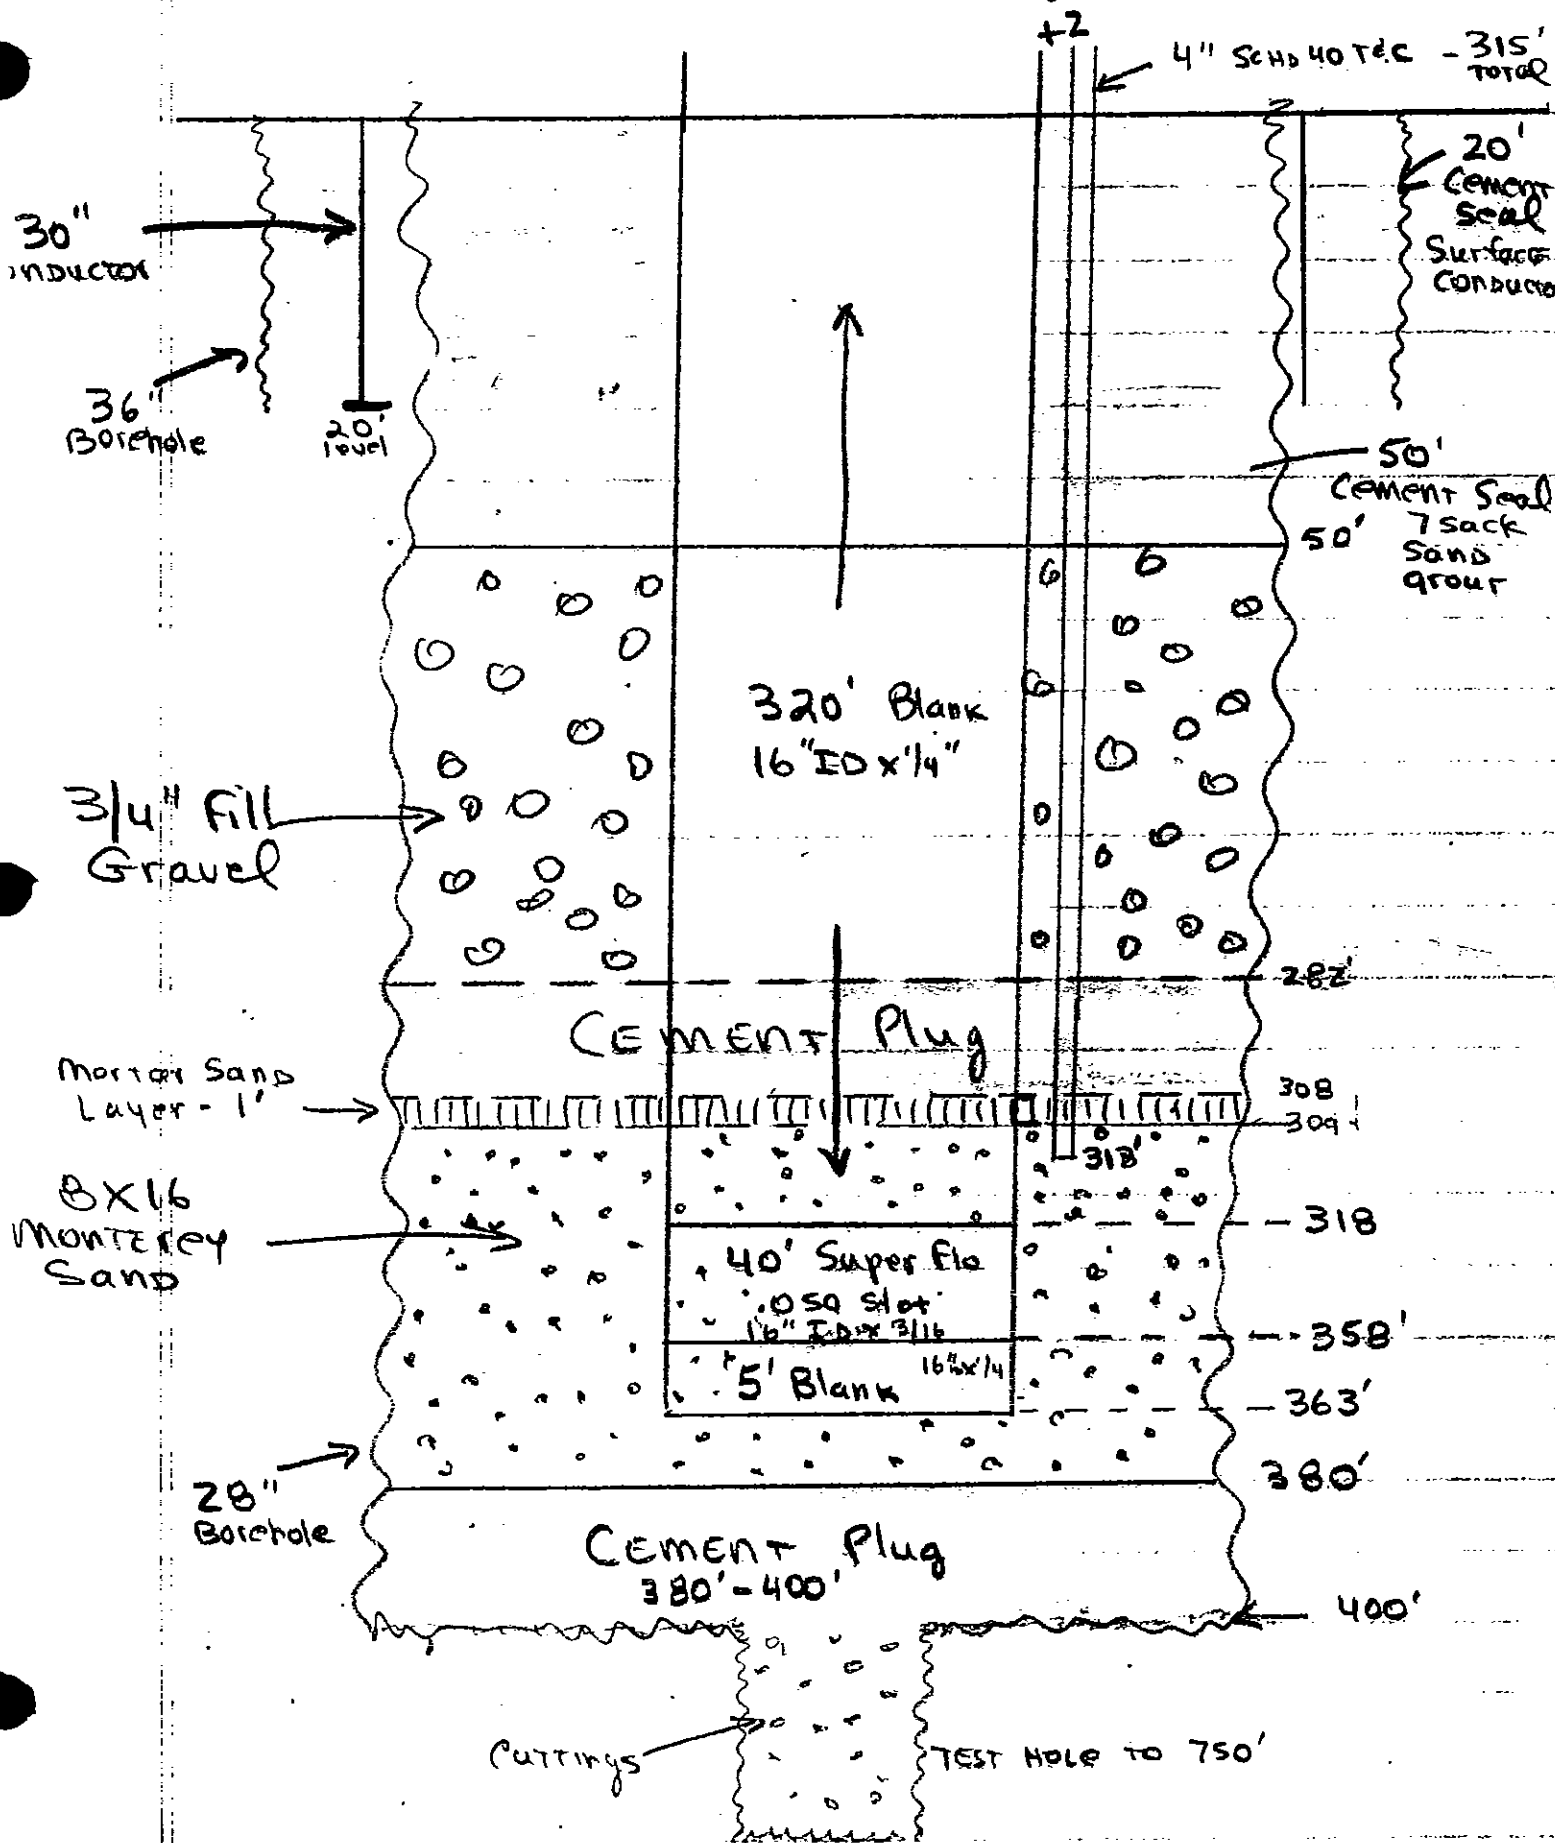 +2
4" SCHD 40 T&C - 315'
TOTAL
20'
Cement
Seal
Surface
Conducto
30"
nductor
36"
Borehole
20'
level
50'
Cement Seal
7 sack
Sand
grout
50'
320' Blank
16" ID x 1/4"
3/4" Fill
Gravel
282'
Cement Plug
Mortar Sand
Layer - 1'
308
309
313'
8X16
Monterey
Sand
318
40' Super Flo
.050 Slot
16" ID x 3/16
358'
5' Blank 16" x 1/4
363'
28"
Borehole
380'
Cement Plug
380'-400'
400'
Cuttings
TEST HOLE TO 750'